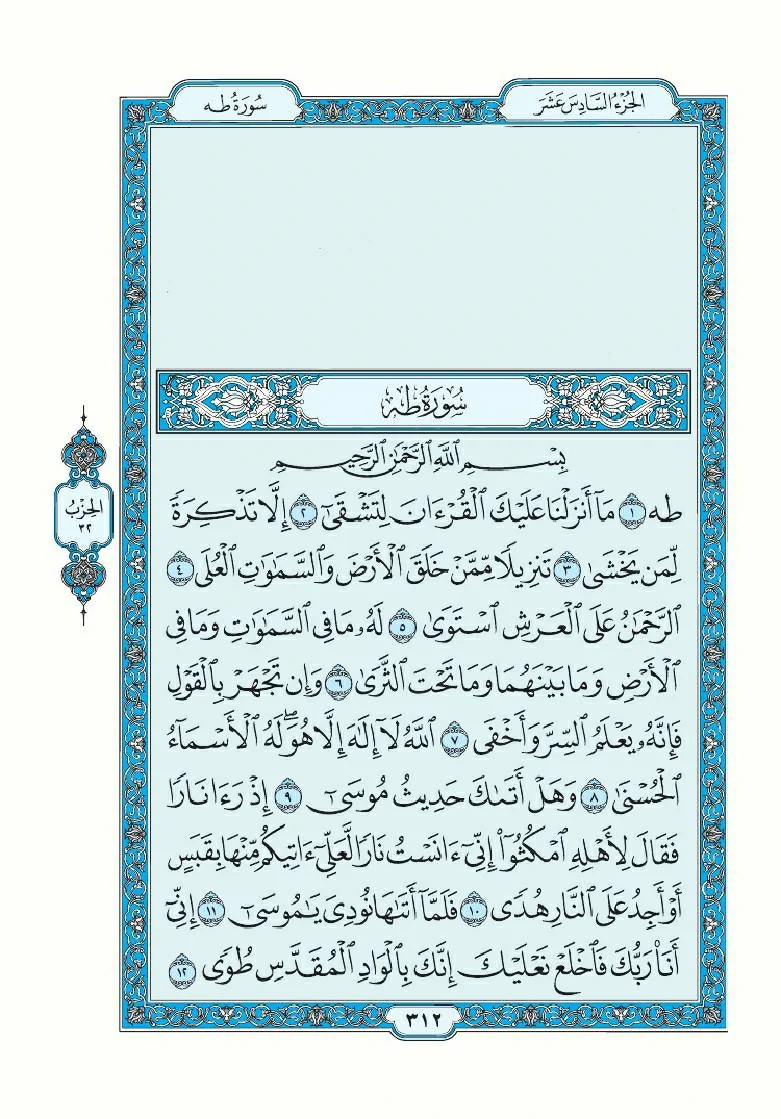 الجُزْءُ السَّادِسَ عَشَرَ
سُورَةُ طه
سُورَةُ طه
بِسْمِ ٱللَّهِ ٱلرَّحْمَٰنِ ٱلرَّحِيمِ
طه ١ مَآ أَنزَلْنَا عَلَيْكَ ٱلْقُرْءَانَ لِتَشْقَىٰٓ ٢ إِلَّا تَذْكِرَةً
لِّمَن يَخْشَىٰ ٣ تَنزِيلًا مِّمَّنْ خَلَقَ ٱلْأَرْضَ وَٱلسَّمَٰوَٰتِ ٱلْعُلَى ٤
ٱلرَّحْمَٰنُ عَلَى ٱلْعَرْشِ ٱسْتَوَىٰ ٥ لَهُۥ مَا فِى ٱلسَّمَٰوَٰتِ وَمَا فِى
ٱلْأَرْضِ وَمَا بَيْنَهُمَا وَمَا تَحْتَ ٱلثَّرَىٰ ٦ وَإِن تَجْهَرْ بِٱلْقَوْلِ
فَإِنَّهُۥ يَعْلَمُ ٱلسِّرَّ وَأَخْفَى ٧ ٱللَّهُ لَآ إِلَٰهَ إِلَّا هُوَۖ لَهُ ٱلْأَسْمَآءُ
ٱلْحُسْنَىٰ ٨ وَهَلْ أَتَىٰكَ حَدِيثُ مُوسَىٰٓ ٩ إِذْ رَءَا نَارًا
فَقَالَ لِأَهْلِهِ ٱمْكُثُوٓا۟ إِنِّىٓ ءَانَسْتُ نَارًا لَّعَلِّىٓ ءَاتِيكُم مِّنْهَا بِقَبَسٍ
أَوْ أَجِدُ عَلَى ٱلنَّارِ هُدًى ١٠ فَلَمَّآ أَتَىٰهَا نُودِىَ يَٰمُوسَىٰٓ ١١ إِنِّىٓ
أَنَا۠ رَبُّكَ فَٱخْلَعْ نَعْلَيْكَ إِنَّكَ بِٱلْوَادِ ٱلْمُقَدَّسِ طُوًى ١٢
الحِزْبُ
٣٢
٣١٢